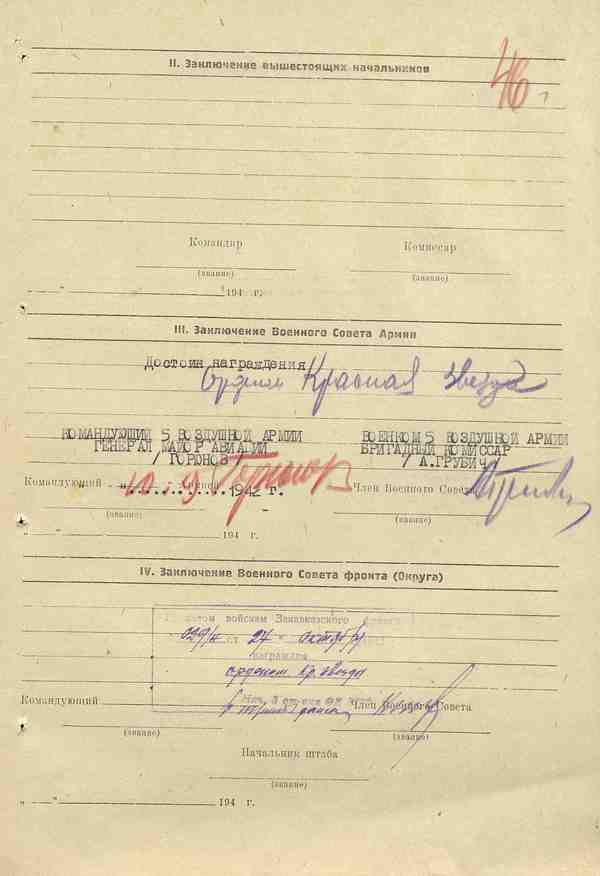 46
II. Заключение вышестоящих начальников
Командир Комиссар
(звание) (звание)
„ “ 194 г.
III. Заключение Военного Совета Армии
Достоин награждения
Орден Красная звезда
КОМАНДУЮЩИЙ 5 ВОЗДУШНОЙ АРМИИ ВОЕНКОМ 5 ВОЗДУШНОЙ АРМИИ
ГЕНЕРАЛ МАЙОР АВИАЦИИ БРИГАДНЫЙ КОМИССАР
/ ГОРЮНОВ / А.ГРУБИЧ
Командующий 10.9 1942 г. Член Военного Совета
(звание) (звание)
„ “ 194 г.
IV. Заключение Военного Совета фронта (Округа)
войскам Закавказского фронта
029/н от 27 октября
награжден
орденом Кр. Звезда
Нач.
Командующий Член Военного Совета
(звание) (звание)
Начальник штаба
(звание)
„ “ 194 г.